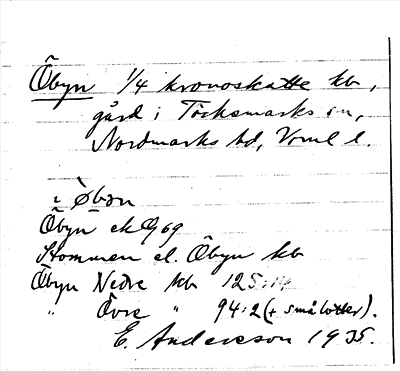 Õbyn 1/4 kronoskatte hb,
gård i Töcksmarks sn,
Nordmarks hd, Värml l.
i `Øbyn
Õbyn ek 69
Stommen el. Õbyn hb
Õbyn Nedre hb 125:14
" Övre " 94:2 (+ små lotter).
E. Andersson 1935.